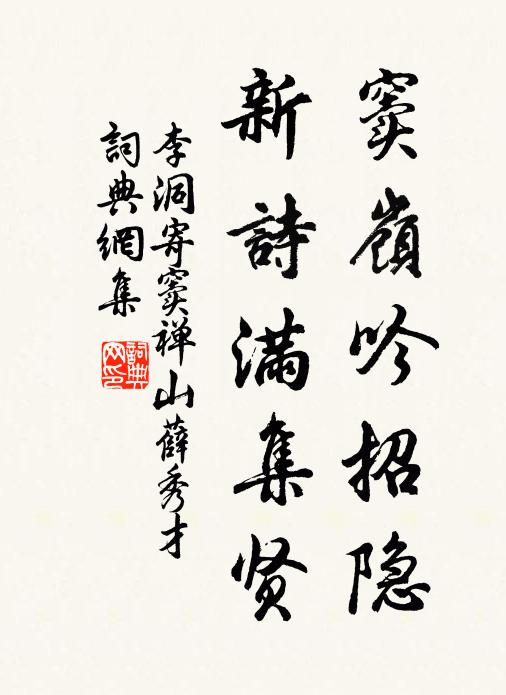 窦嶺吟招隐
新詩満集贤
李洞寄窦禅山薛秀才
詞典網集
詞典网印